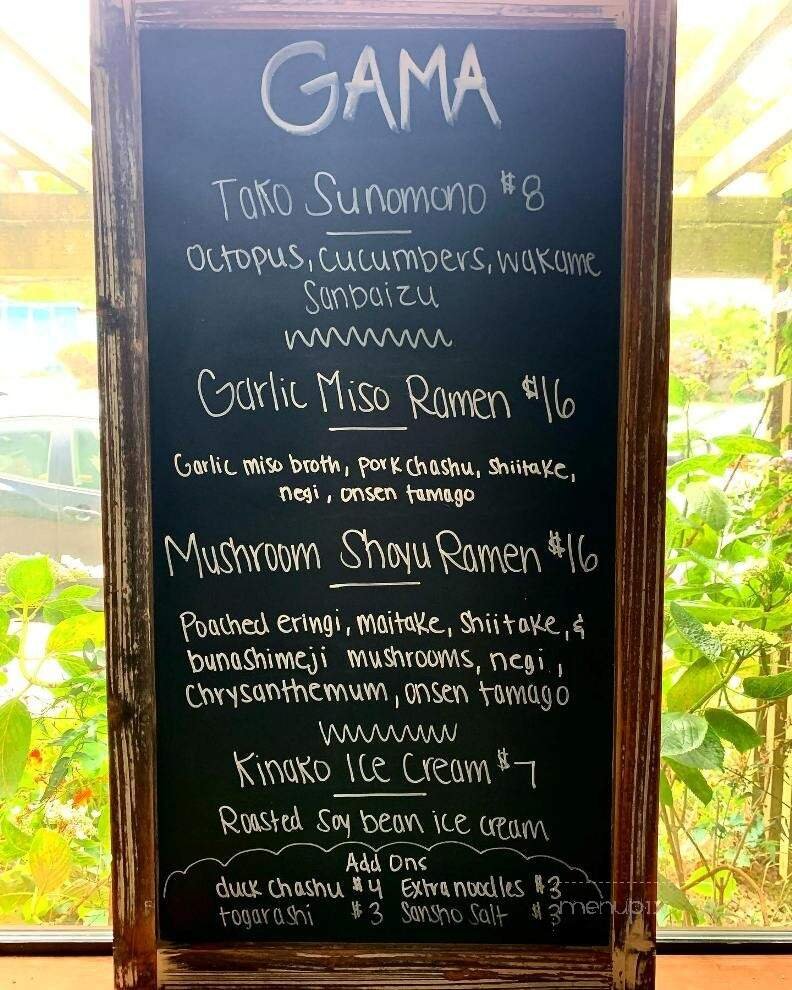 GAMA
Tako Sunomono $8
Octopus, cucumbers, wakame
Sanbaizu
Garlic Miso Ramen $16
Garlic miso broth, pork chashu, shiitake,
negi, onsen tamago
Mushroom Shoyu Ramen $16
Poached eringi, maitake, shiitake, &
bunashimeji mushrooms, negi,
Chrysanthemum, onsen tamago
Kinako Ice Cream $7
Roasted Soy bean ice cream
Add Ons
duck chashu $4 Extra noodles $3
togarashi $3 Sansho Salt $3